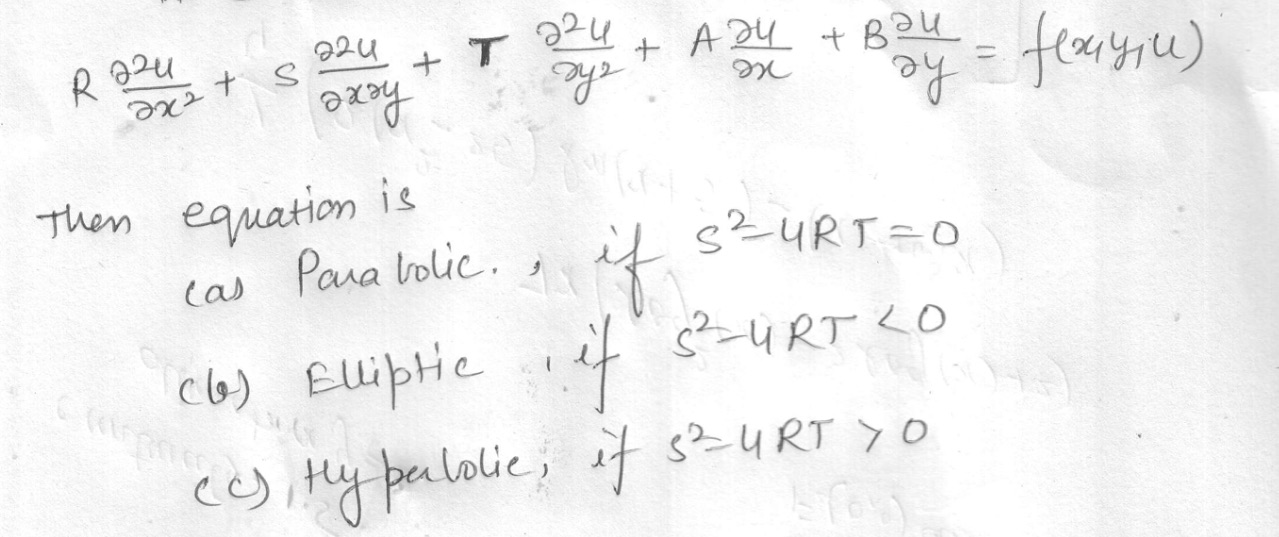 R ∂²u/∂x² + S ∂²u/∂x∂y + T ∂²u/∂y² + A ∂u/∂x + B ∂u/∂y = f(x,y,u)
Then equation is
(a) Parabolic. , if S²-4RT=0
(b) Elliptic , if S²-4RT <0
(c), Hyperbolic, if S²-4RT >0